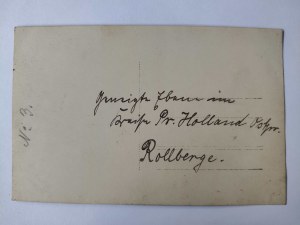 Geneigte Ebene im
Kreise Pr. Holland Ostpr.
Rollberge.
No 3.